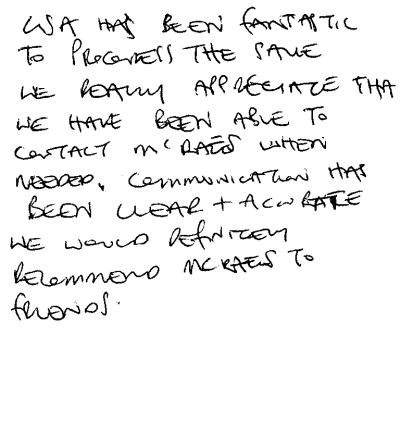 LISA HAS BEEN FANTASTIC
TO PROGRESS THE SALE
WE REALLY APPRECIATE THA
WE HAVE BEEN ABLE TO
CONTACT MCRAES WHEN
NEEDED. COMMUNICATION HAS
BEEN CLEAR + ACCURATE
WE WOULD DEFINITELY
RECOMMEND MCRAES TO
FRIENDS.